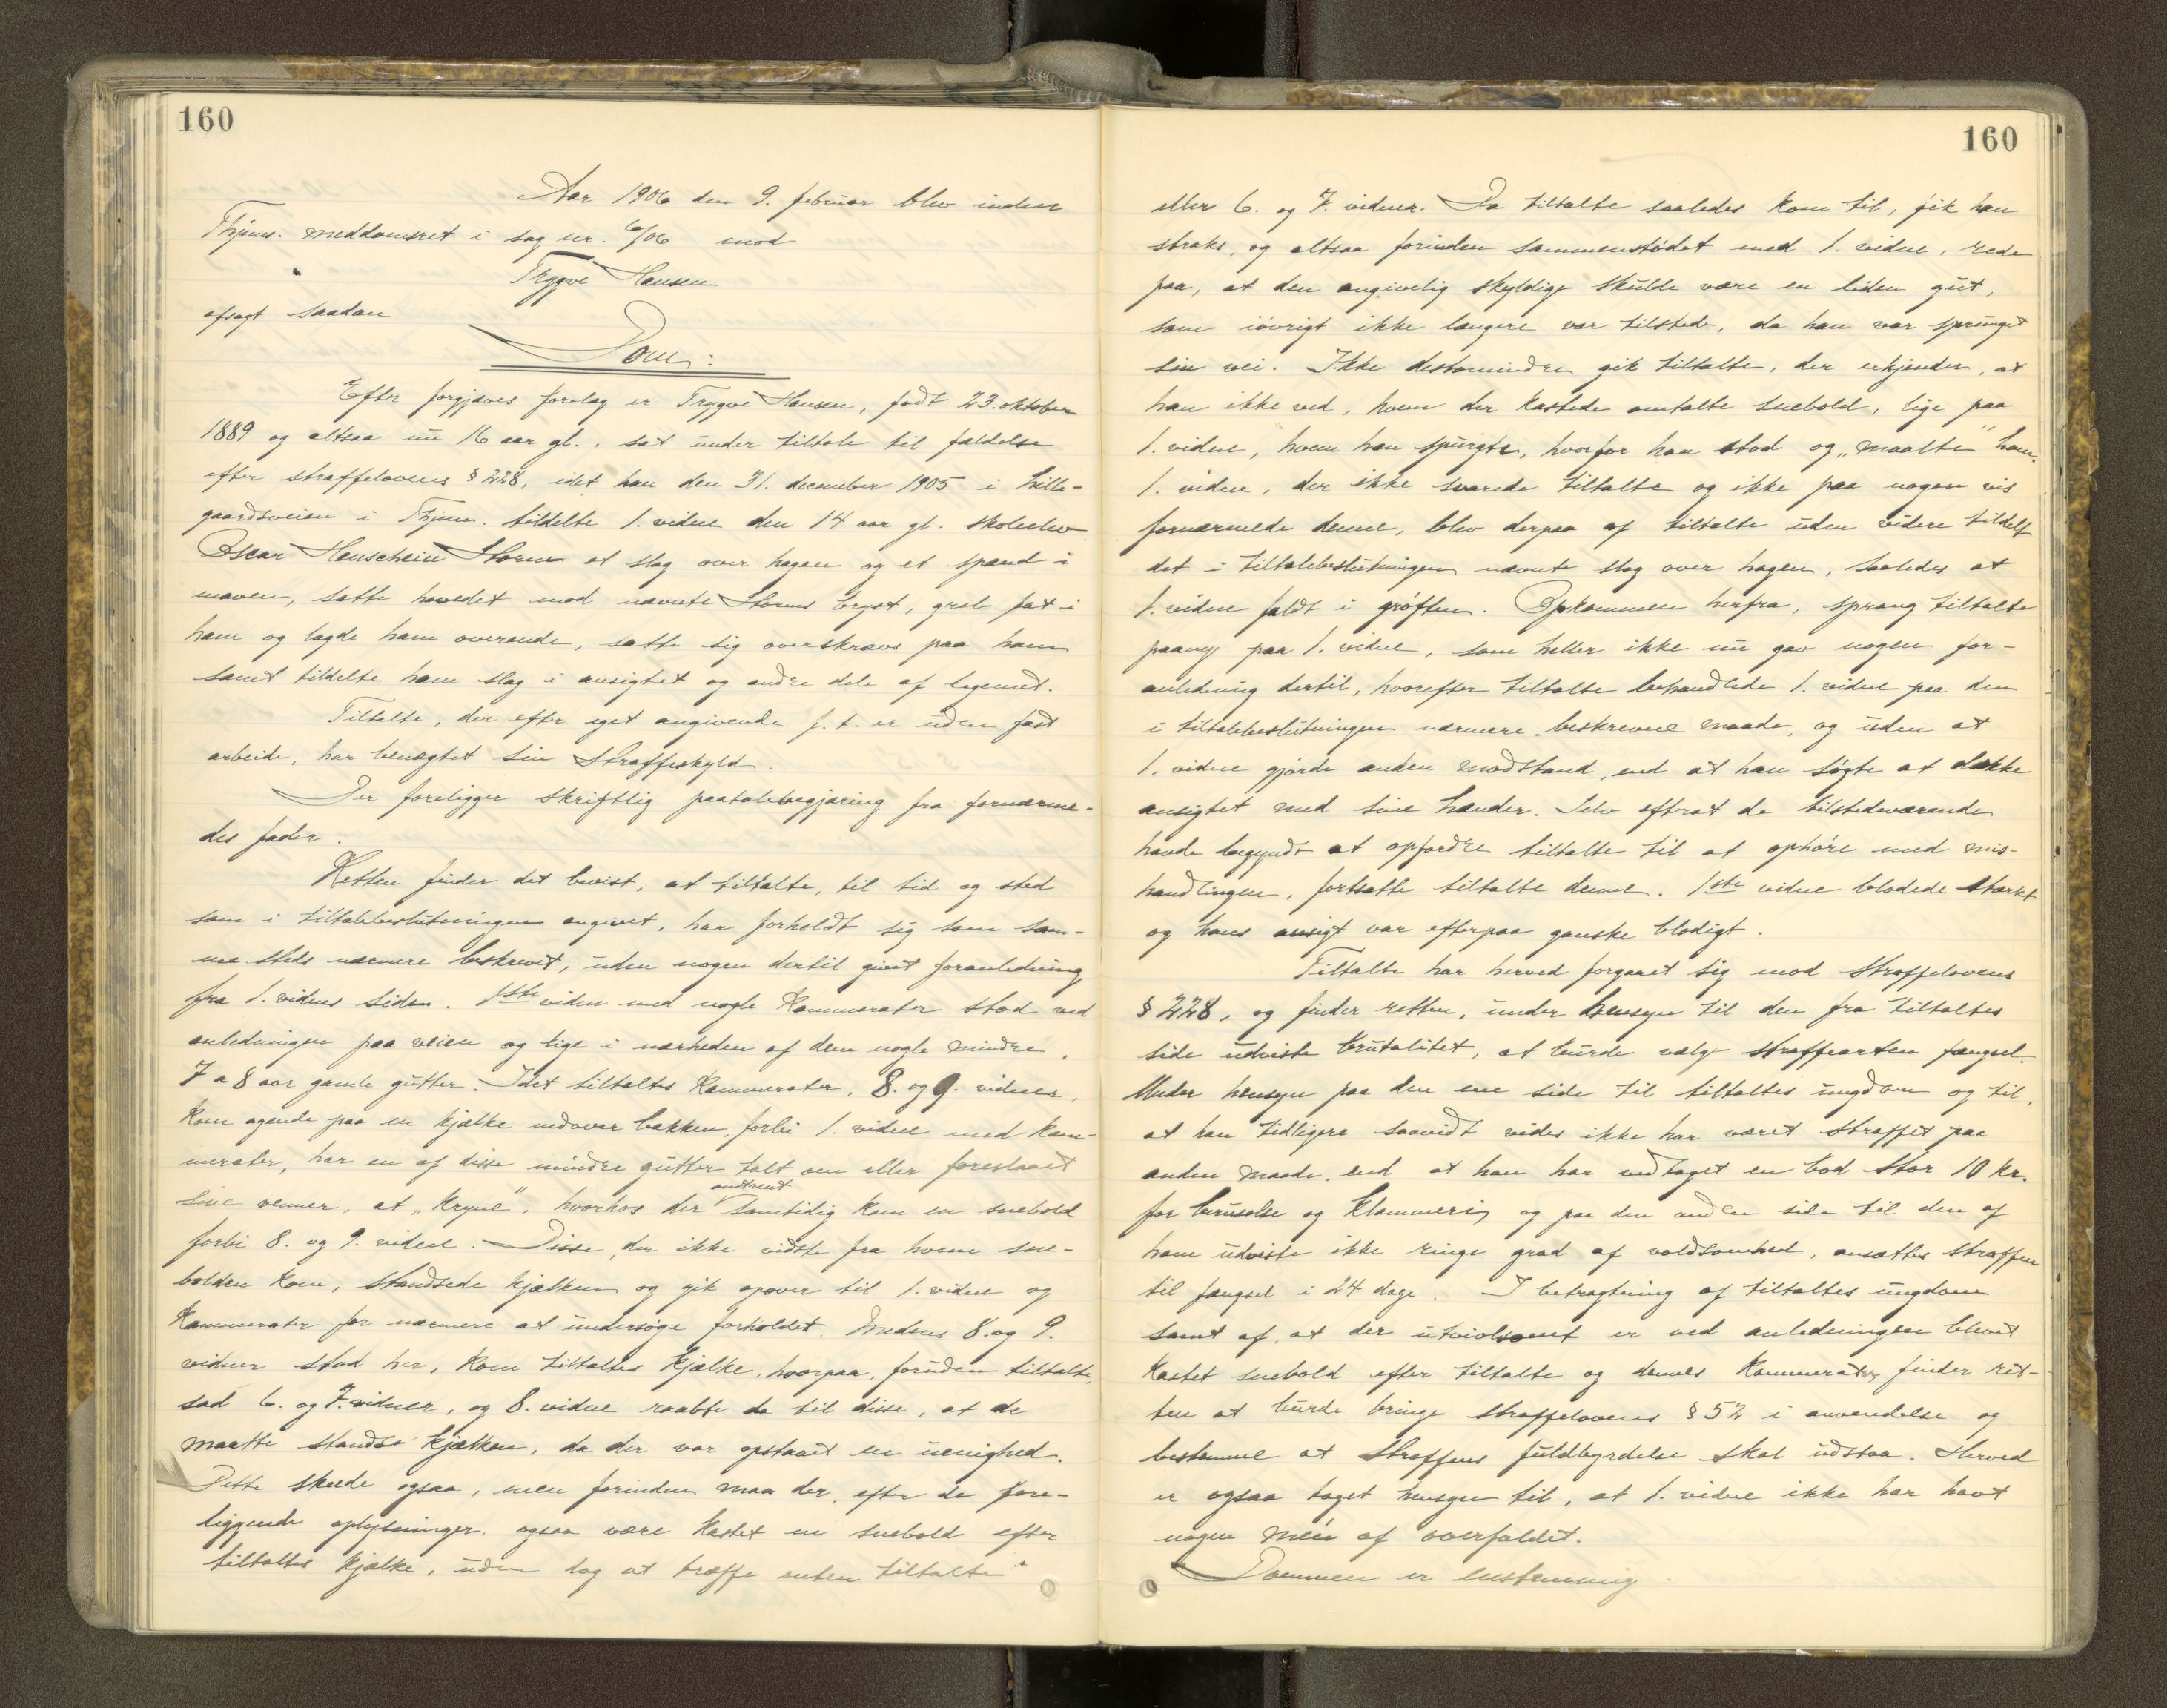 160
Aar 1906 den 9. februar blev inden
Thjems. meddomsret i sag nr. 6/06 mod
Trygve Hansen
afsagt saadan
Dom:
Efter forgjæves forelæg er Trygve Hansen, født 23. oktober
1889 og altsaa nu 16 aar gl., sat under tiltale til fældelse
efter straffelovens § 228, idet han den 31. december 1905 i Lille-
gaardsveien i Thjem. tildelte 1. vidne den 14 aar gl. skoleelev
Oscar Storm et slag over hagen og et spænd i
maven, satte hovedet mod nævnte Storms bryst, greb fat i
ham og lagde ham overende, satte sig overskrævs paa ham
samt tildelte ham slag i ansigtet og andre dele af legemet.
Tiltalte, der efter eget angivende f. t. er uden fast
arbeide, har benægtet sin Straffeskyld.
Der foreligger skriftlig paatalebegjæring fra fornærme-
des fader.
Retten finder det bevist, at tiltalte, til tid og sted
som i tiltalebeslutningen angivet, har forholdt sig som sam-
me steds nærmere beskrevet, uden nogen dertil givet foranledning
fra 1. vidnes side. 1ste vidne med nogle Kammerater stod ved
anledningen paa veien og lige i nærheden af dem nogle mindre,
7 a 8 aar gamle gutter. Idet tiltaltes Kammerater, 8. og 9. vidner,
kom agende paa en kjælke nedover bakken, forbi 1. vidne med kam-
merater, har en af disse mindre gutter talt om eller foreslaaet
sine venner, at „kryne", hvorhos der omtrent samtidig kom en snebold
forbi 8. og 9. vidne. Disse, der ikke vidste fra hvem sne-
bolden kom, standsede kjælken og gik opover til 1. vidne og
Kammerater for nærmere at undersøge forholdet. Medens 8. og 9.
vidner stod her, kom tiltaltes kjælke, hvorpaa, foruden tiltalte,
sad 6. og 7. vidner, og 8. vidne raabte da til disse, at de
maatte standse kjælken, da der var opstaaet en uenighed.
Dette skede ogsaa, men forinden maa der, efter de fore-
liggende oplysninger, ogsaa være kastet en snebold efter
tiltaltes kjælke, uden dog at træffe enten tiltalte
160
eller 6. og 7. vidner. Da tiltalte saaledes kom til, fik han
straks, og altsaa forinden sammenstødet med 1. vidne, rede
paa, at den angivelig skyldige skulde være en liden gut,
som iøvrigt ikke længere var tilstede, da han var sprunget
sin vei. Ikke destomindre gik tiltalte, der erkjender, at
han ikke ved, hvem der kastede omtalte snebold, lige paa
1. vidne, hvem han spurgte, hvorfor han stod og „maalte" ham.
1. vidne, der ikke svarede tiltalte og ikke paa nogen vis
fornærmede denne, blev derpaa af tiltalte uden videre tildelt
det i tiltalebeslutningen nævnte slag over hagen, saaledes at
1. vidne faldt i grøften. Opkommen herfra, sprang tiltalte
paany paa 1. vidne, som heller ikke nu gav nogen for-
anledning dertil, hvorefter tiltalte behandlede 1. vidne paa den
i tiltalebeslutningen nærmere beskrevne maade, og uden at
1. vidne gjorde anden modstand, end at han søgte at dække
ansigtet med sine hænder. Selv efterat de tilstedeværende
havde begyndt at opfordre tiltalte til at ophøre med mis-
handlingen, fortsatte tiltalte denne. 1ste vidne blødede stærkt
og hans ansigt var efterpaa ganske blodigt.
Tiltalte har herved forgaaet sig mod Straffelovens
§ 228, og finder retten, under hensyn til den fra tiltaltes
side udviste brutalitet, at burde vælge straffearten fængsel.
Under hensyn paa den ene side til tiltaltes ungdom og til,
at han tidligere saavidt vides ikke har været straffet paa
anden maade, end at han har vedtaget en bod stor 10 kr.
for beruselse og klammeri, og paa den anden side til den af
ham udviste ikke ringe grad af voldsomhed, ansættes straffen
til fængsel i 24 dage. I betragtning af tiltaltes ungdom
samt af, at der utvivlsomt er ved anledningen blevet
kastet snebold efter tiltalte og dennes Kammerater, finder ret-
ten at burde bringe straffelovens § 52 i anvendelse og
bestemme at Straffens fuldbyrdelse skal udstaa. Herved
er ogsaa taget hensyn til, at 1. vidne ikke har havt
nogen mén af overfaldet.
Dommen er enstemmig.